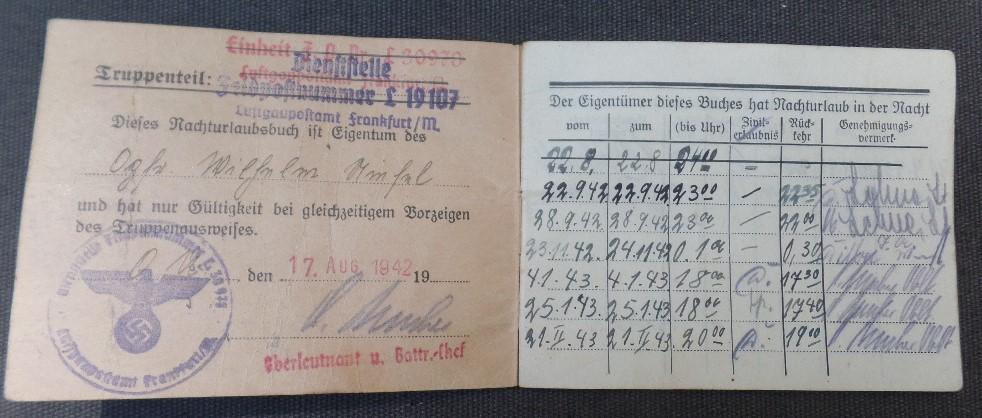 Einheit F. P. Nr. L 30970
Luftgaupostamt Frankfurt/M.
Truppenteil: Dienststelle
Feldpostnummer L 19107
Luftgaupostamt Frankfurt/M.
Dieses Nachturlaubsbuch ist Eigentum des
Ogfr. Wilhelm
und hat nur Gültigkeit bei gleichzeitigem Vorzeigen
des Truppenausweises.
O. U. den 17. AUG. 1942 19
Oberleutnant u. Battr.-Chef
Dienststelle Feldpostnummer L 30970
Luftgaupostamt Frankfurt/M.
Der Eigentümer dieses Buches hat Nachturlaub in der Nacht
vom zum (bis Uhr) Zivil-erlaubnis Rück-kehr Genehmigungs-vermerk
22.8. 22.8 24 00 –
22.9.42 22.9.42 23 00 – 22 35
28.9.42. 28.9.42 23 00 – 22 00
23.11.42. 24.11.42 0.1 00 – 0,30
4.1.43. 4.1.43 18 00 a. 17 30
25.1.43 25.1.43 18 00 17 40
21.II.43 21.II.43 20 00 a. 19 00